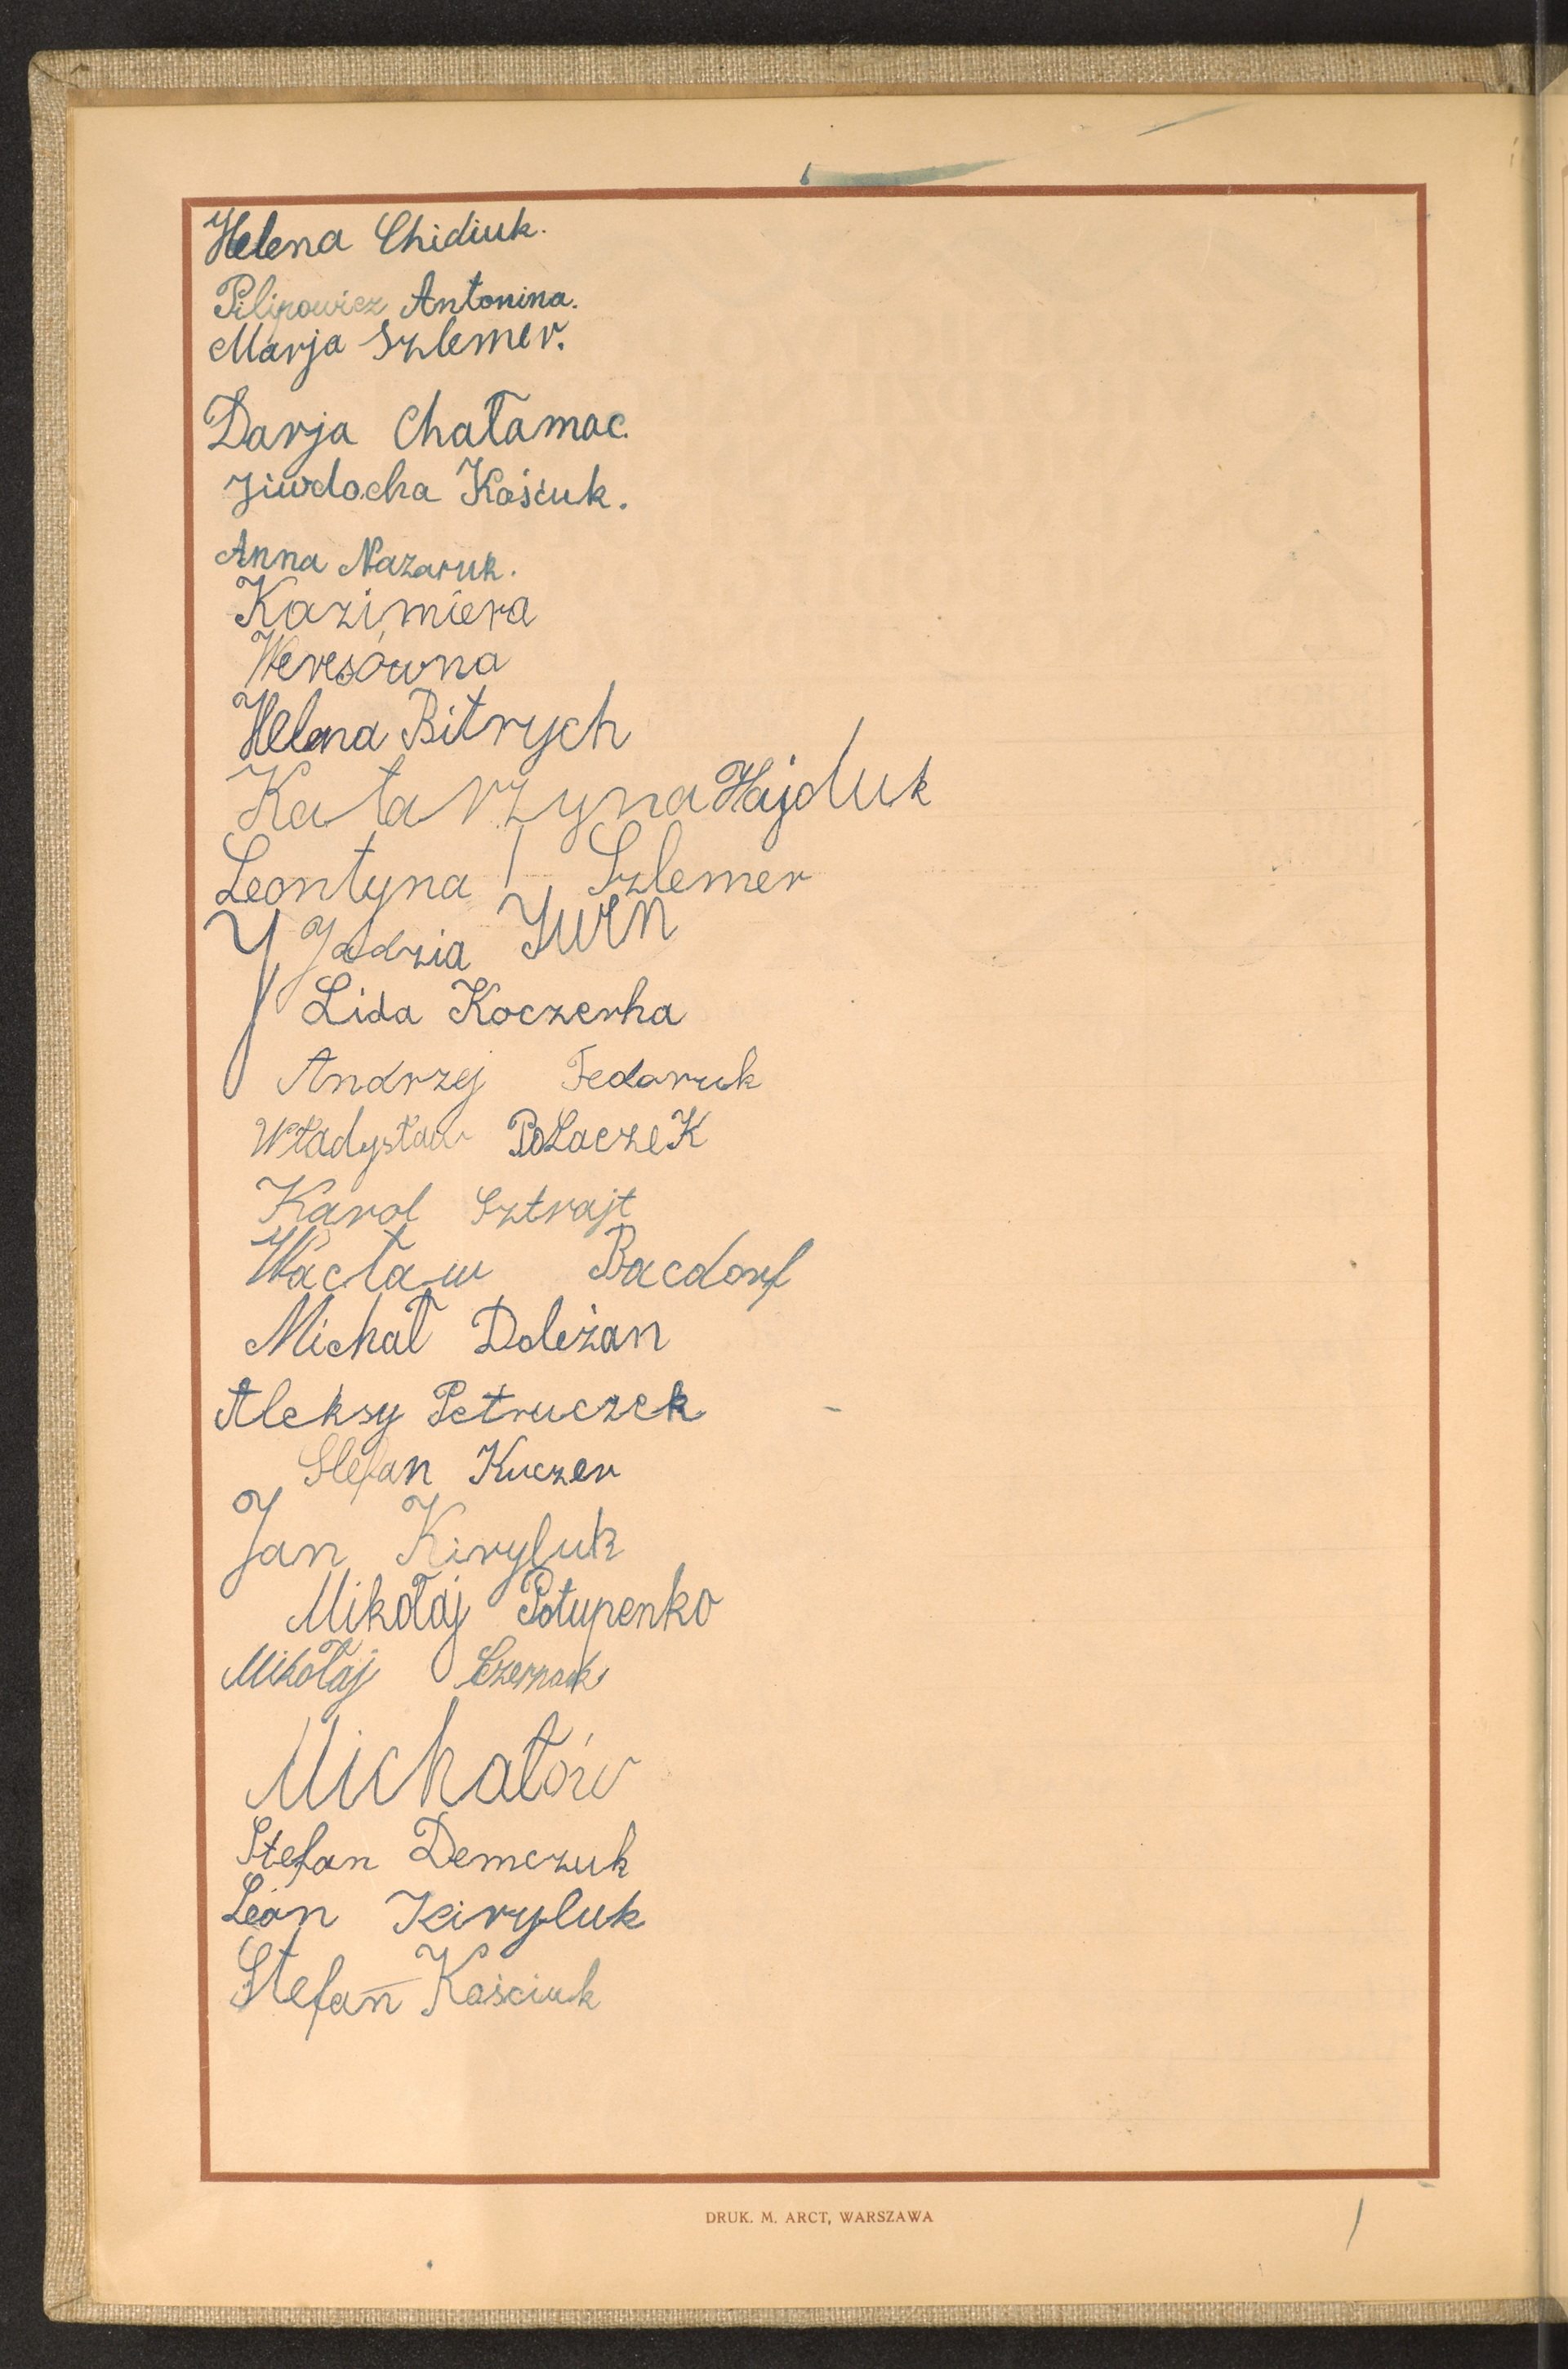 Helena Chidiuk.
Pilipowicz Antonina.
Marja Szlemer.
Darja Chałamac.
Jiwdocha Kośćuk.
Anna Nazaruk.
Kazimiera
Weresówna
Helena Bitrych
Katarzyna Hajduk
Leontyna Szlemer
Jadzia
Lida Koczerha
Andrzej Fedoruk
Władysław PoLaczeK
Karol Sztrajt
Wacław Bacdorf
Michał Doleżan
Aleksy Petruczek
Stefan Kuczer
Jan Kiryluk
Mikołaj Potupenko
Mikołaj
Michałów
Stefan Demczuk
Leon Kiryluk
Stefan Kościuk
DRUK. M. ARCT, WARSZAWA